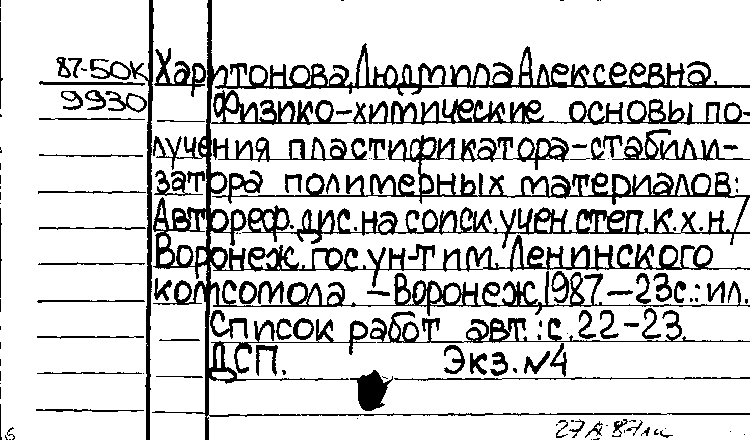 87-50К Харитонова, Людмила Алексеевна.
9930 Физико-химические основы по-
лучения пластификатора-стабили-
затора полимерных материалов:
Автореф. дис. на соиск. учен. степ. к. х. н. /
Воронеж. гос. ун-т им. Ленинского
комсомола. — Воронеж, 1987. — 23с.: ил.
Список работ авт.: с. 22-23.
ДСП. Экз. №4
6